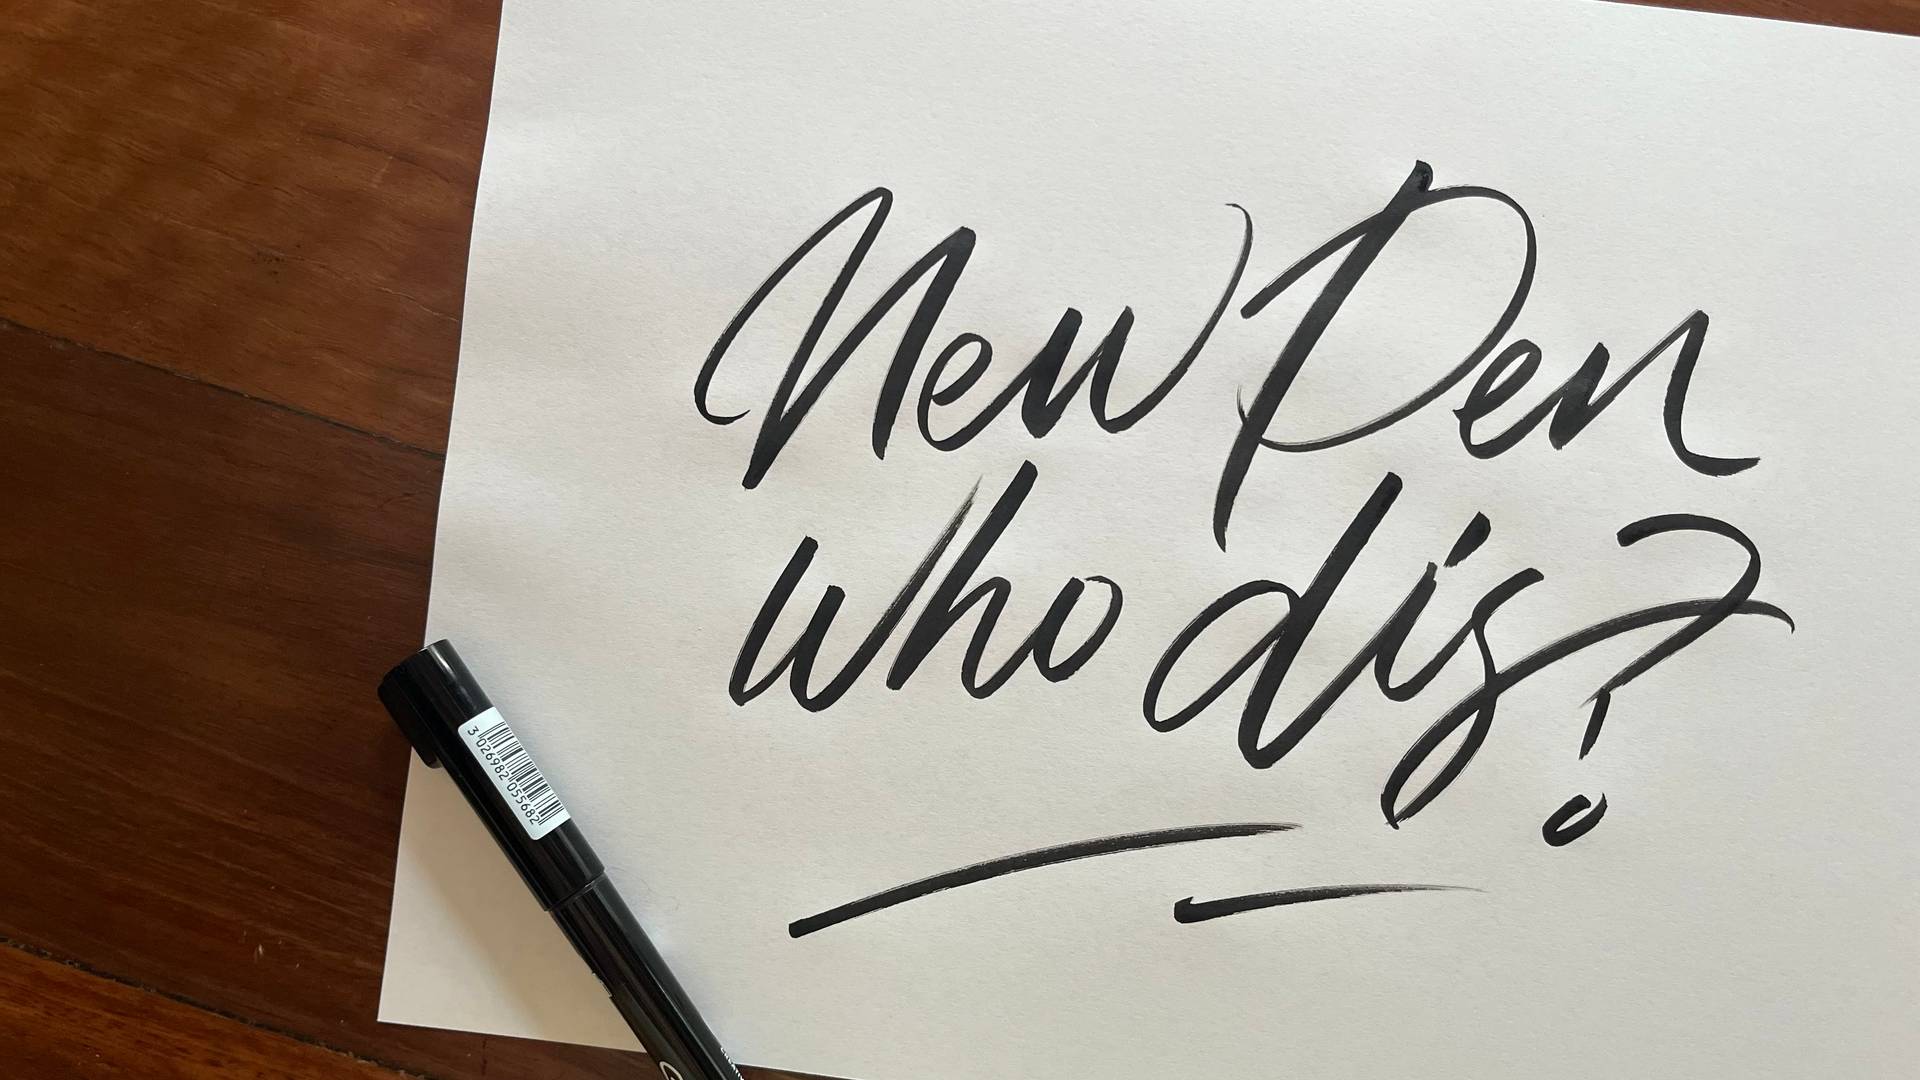 New Pen
who dis?
3 026982 055682